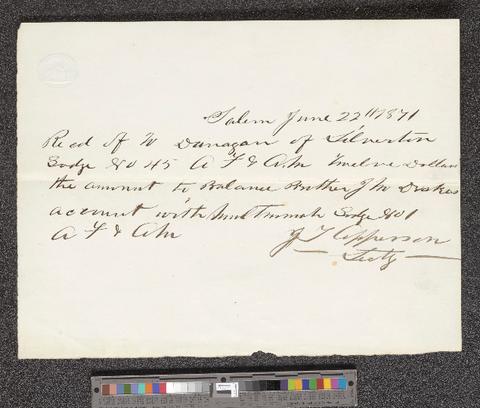 Salem June 22nd 1871
Recd of W Dunagan of Silverton
Lodge No 45 A F & A.M Twelve Dollars
the amount to Balance Brother J M Drakes
account with Multnomah Lodge No 1
A F & A M
J T Apperson
Secty